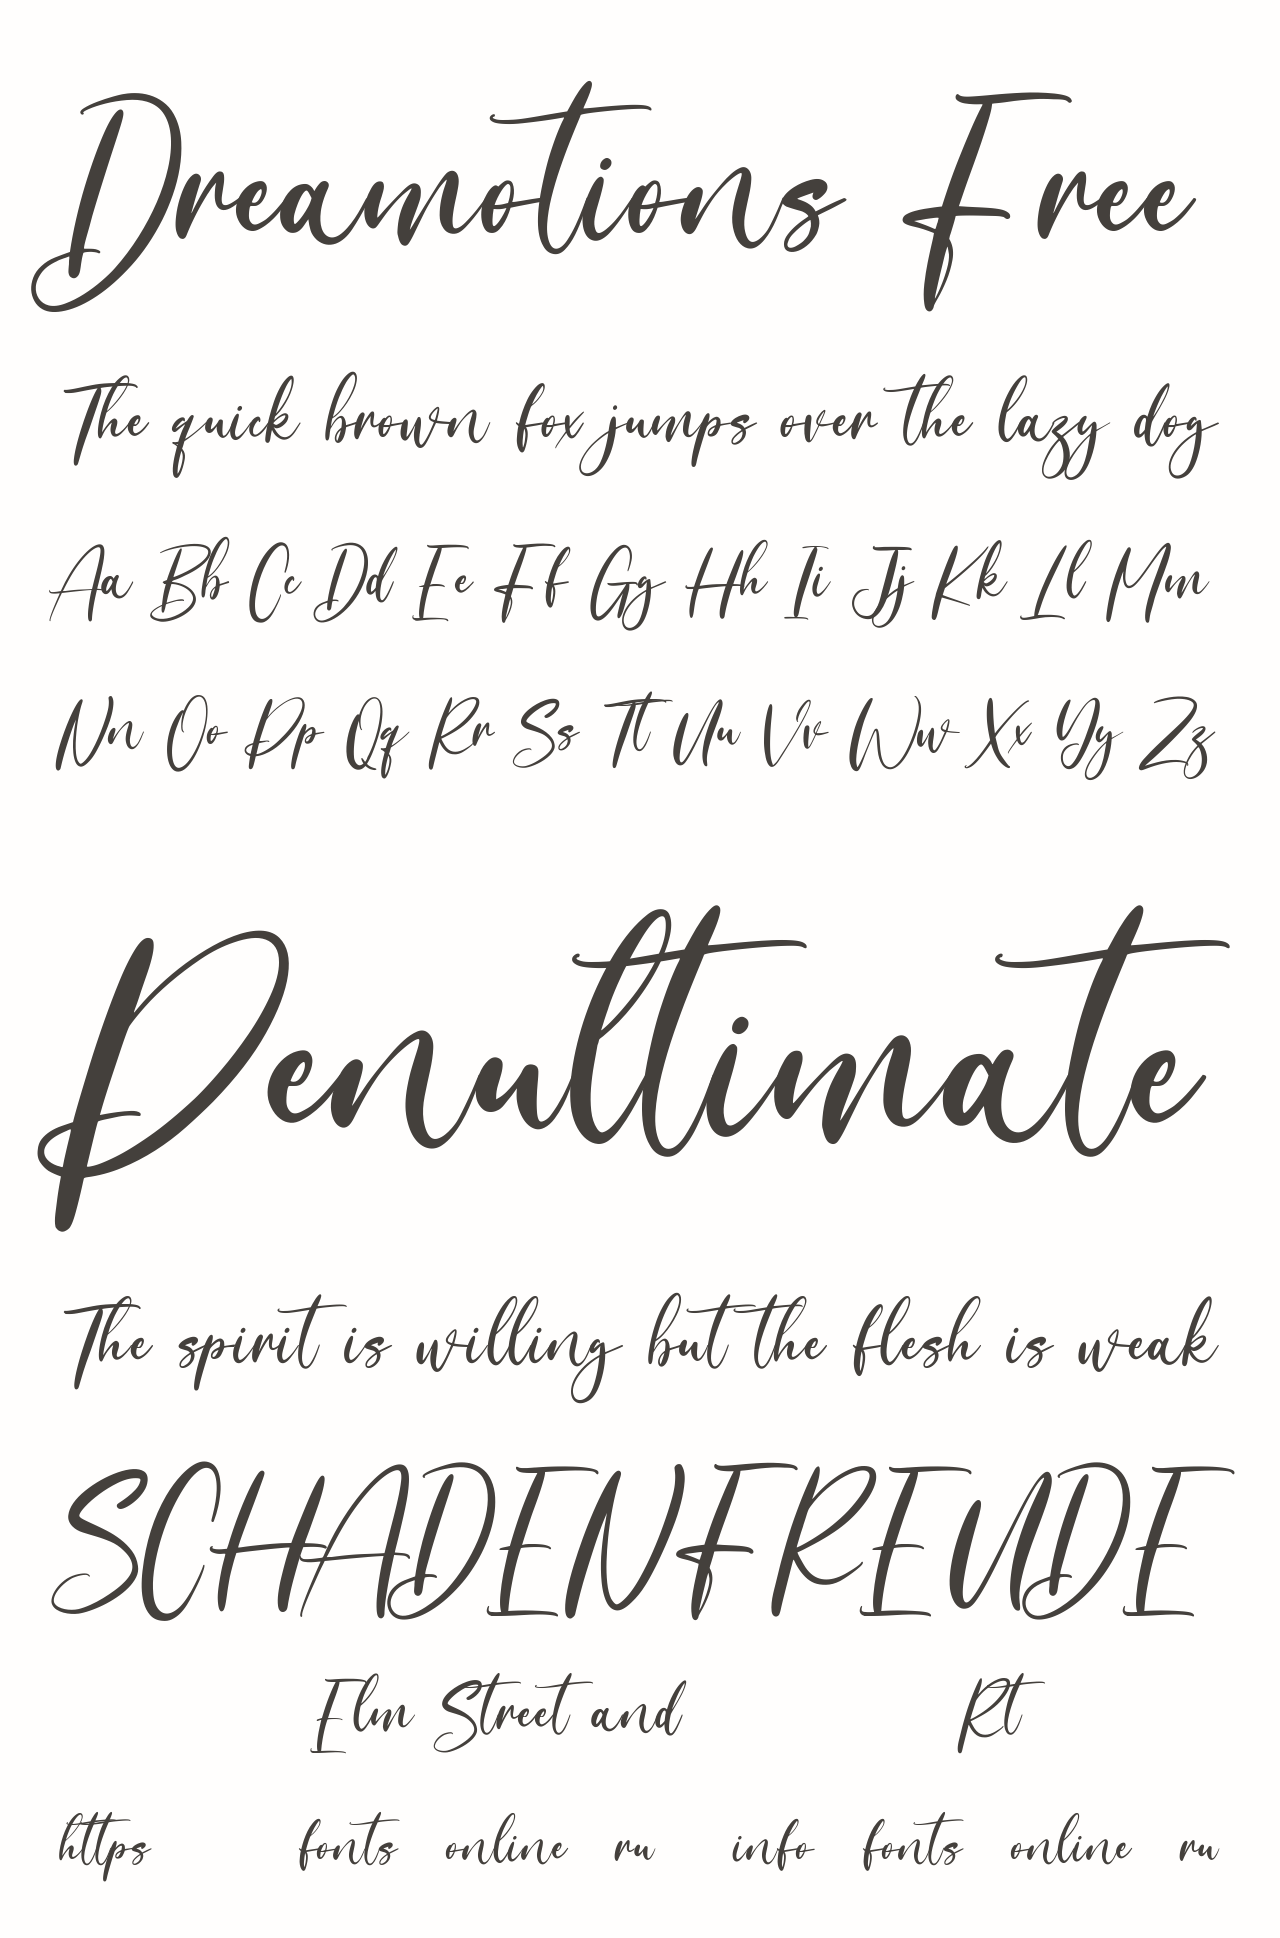 Dreamotions Free
The quick brown fox jumps over the lazy dog
Aa Bb Cc Dd Ee Ff Gg Hh Ii Jj Kk Ll Mm
Nn Oo Pp Qq Rr Ss Tt Uu Vv Ww Xx Yy Zz
Penultimate
The spirit is willing but the flesh is weak
SCHADENFREUDE
Elm Street and Rt
https fonts online ru info fonts online ru